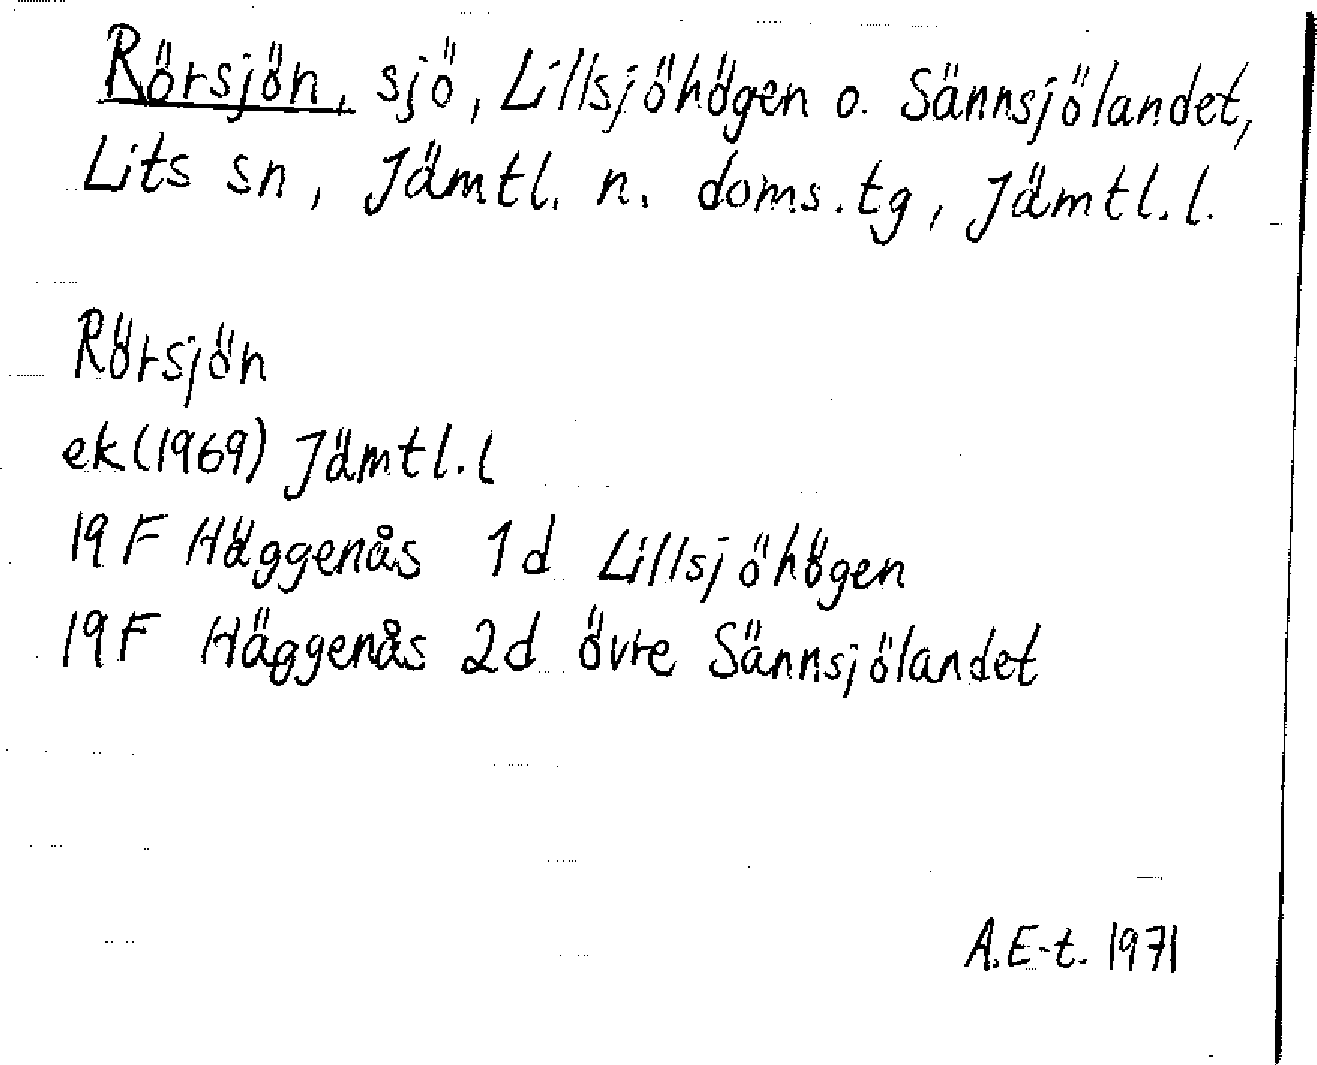 Rörsjön, sjö, Lillsjöhögen o. Sännsjölandet,
Lits sn, Jämtl. n. doms.tg, Jämtl.l.
Rörsjön
ek(1969) Jämtl.l
19F Häggenås 1d Lillsjöhögen
19F Häggenås 2d övre Sännsjölandet
A.E-t. 1971